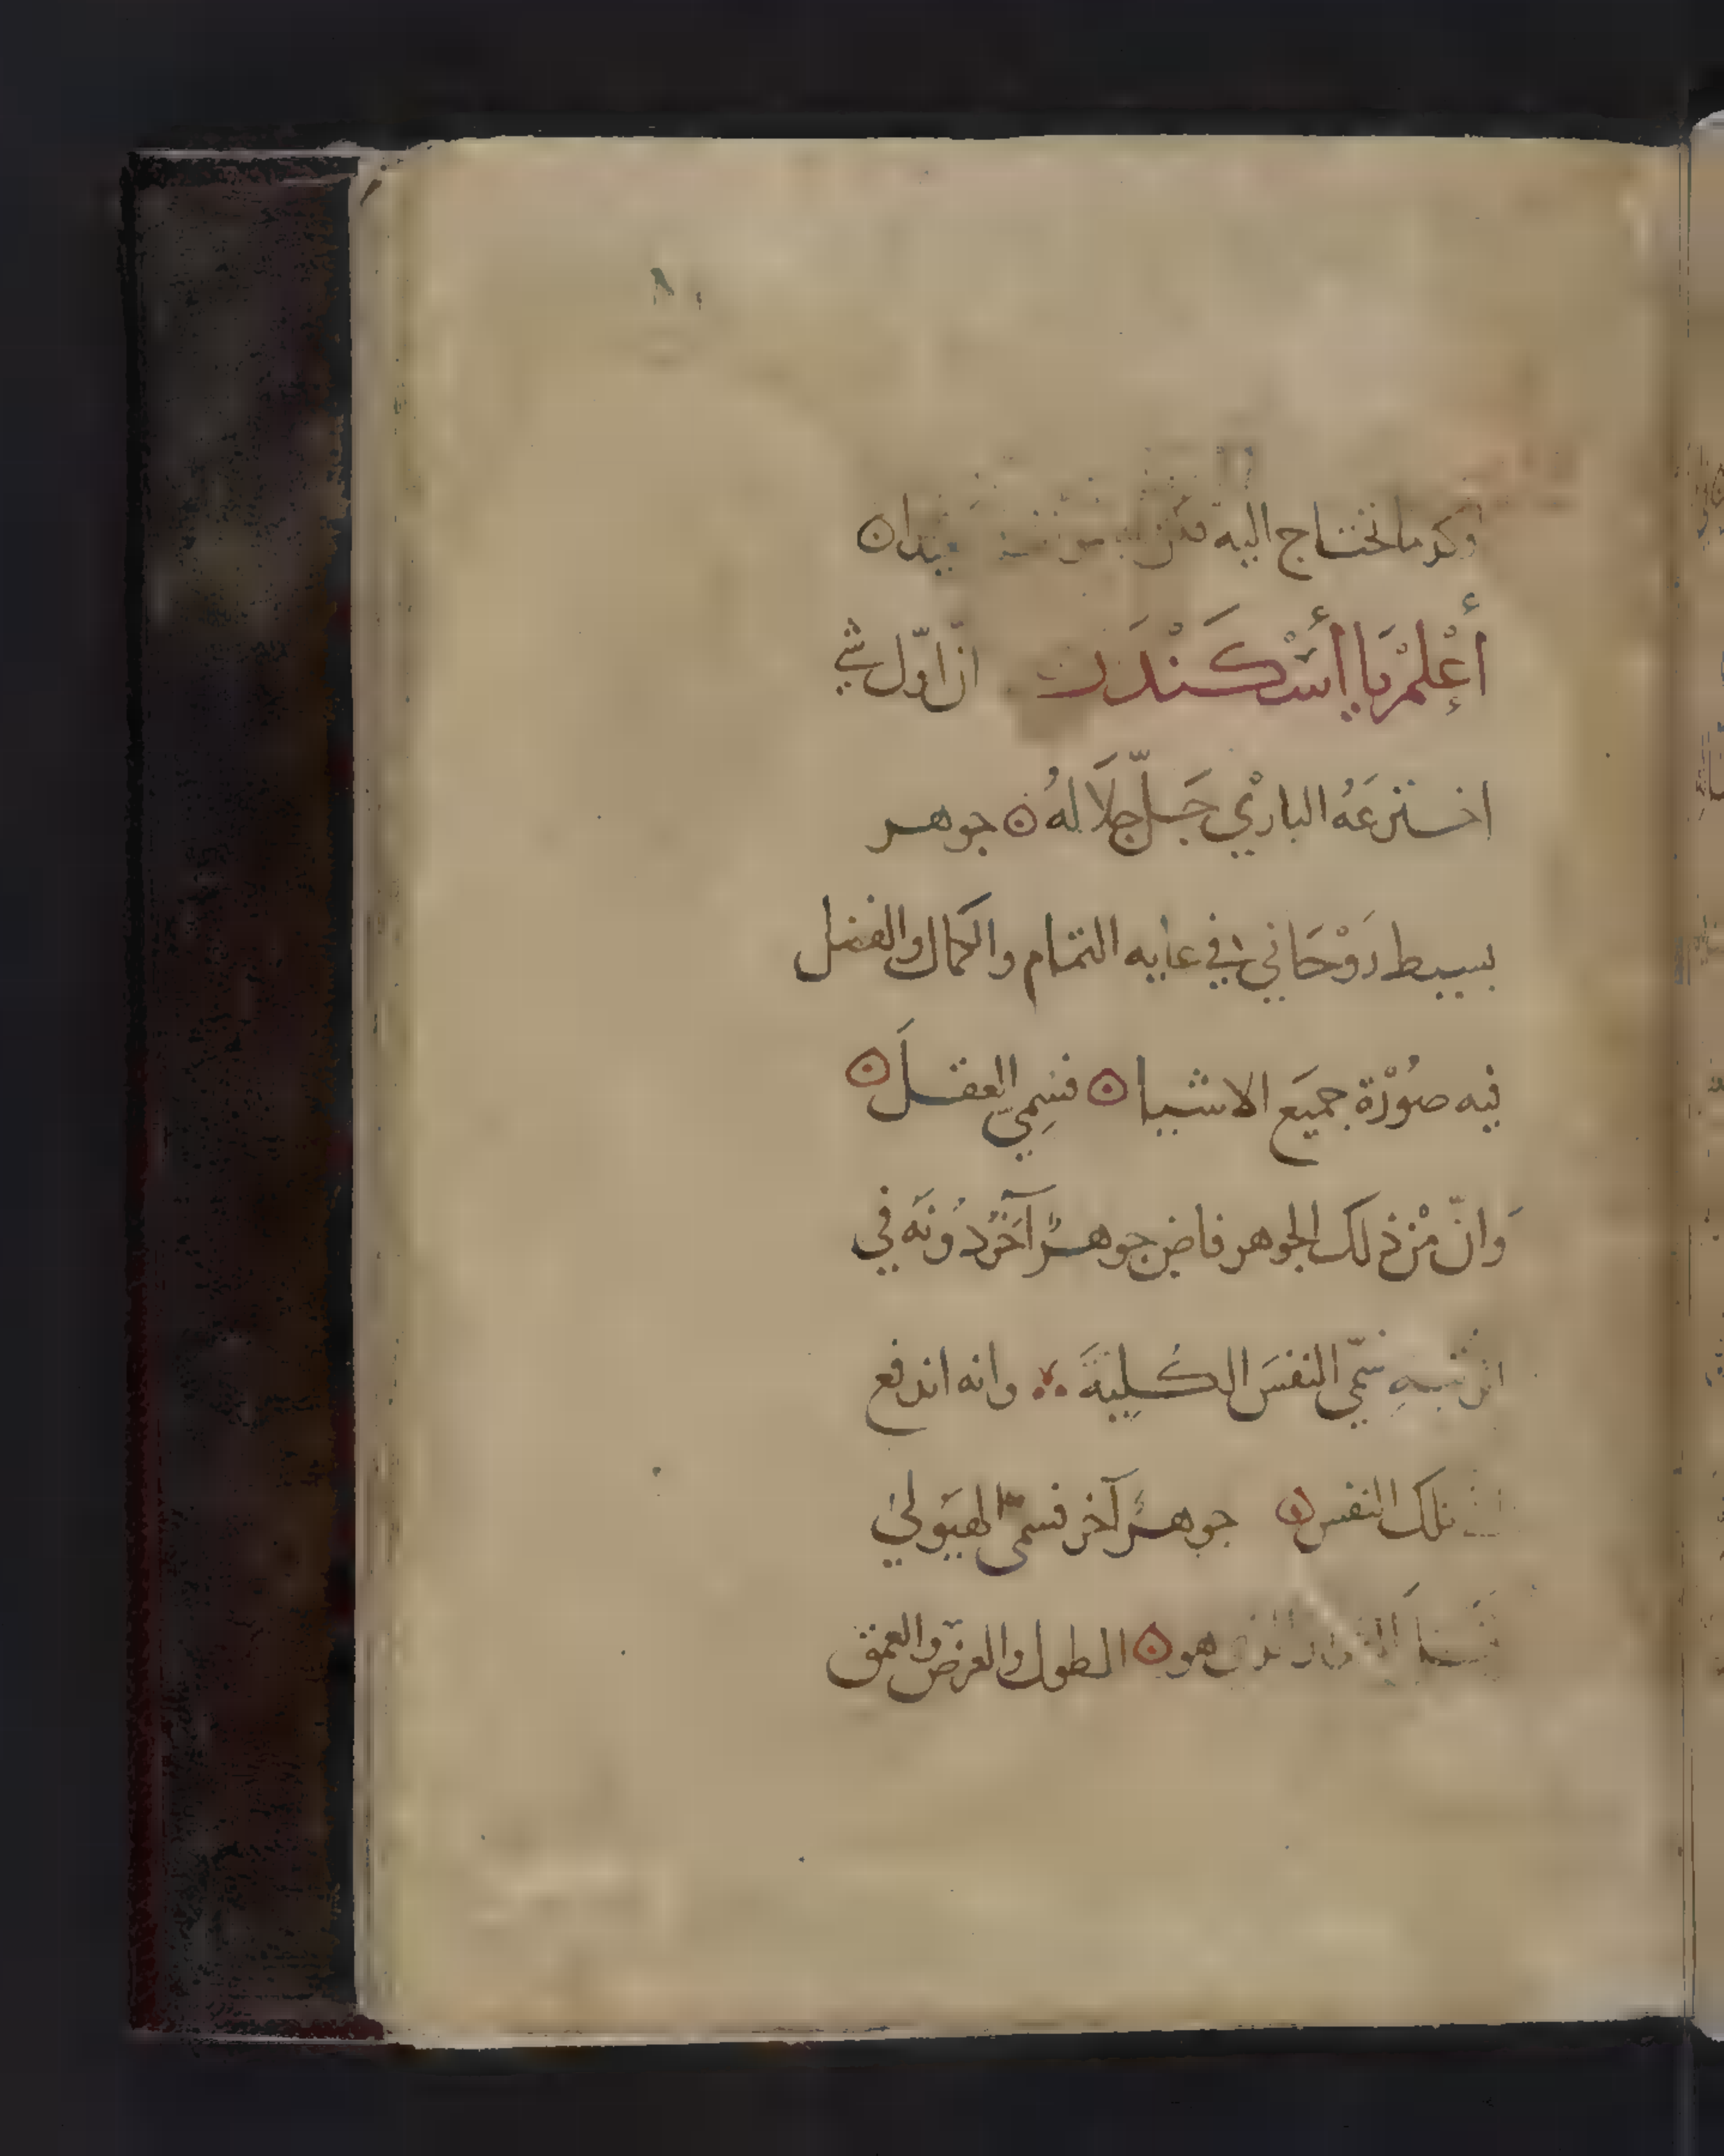 وكر ما تحتاج اليه
أعْلَمْ يَا أَسْكَنْدَر انّ اوّل شي
اخترعَهُ الباري جَلّ جلَالهُ جوهر
بسيط رَوْحَاني في غايه التمام والكمال والفضل
فيه صُوْرْة جميَع الاشيا فسُمِيّ العقل
وَانّ مْن ذلك الجوهر فاض جوهرٌ آخَرُ دُونَه في
سّمّي النفسَ الكُليَة وانه اندفع
تلك النفس جوهرٌ آخر فسمّى الهيَولي
هو الطول والعرض والعمق